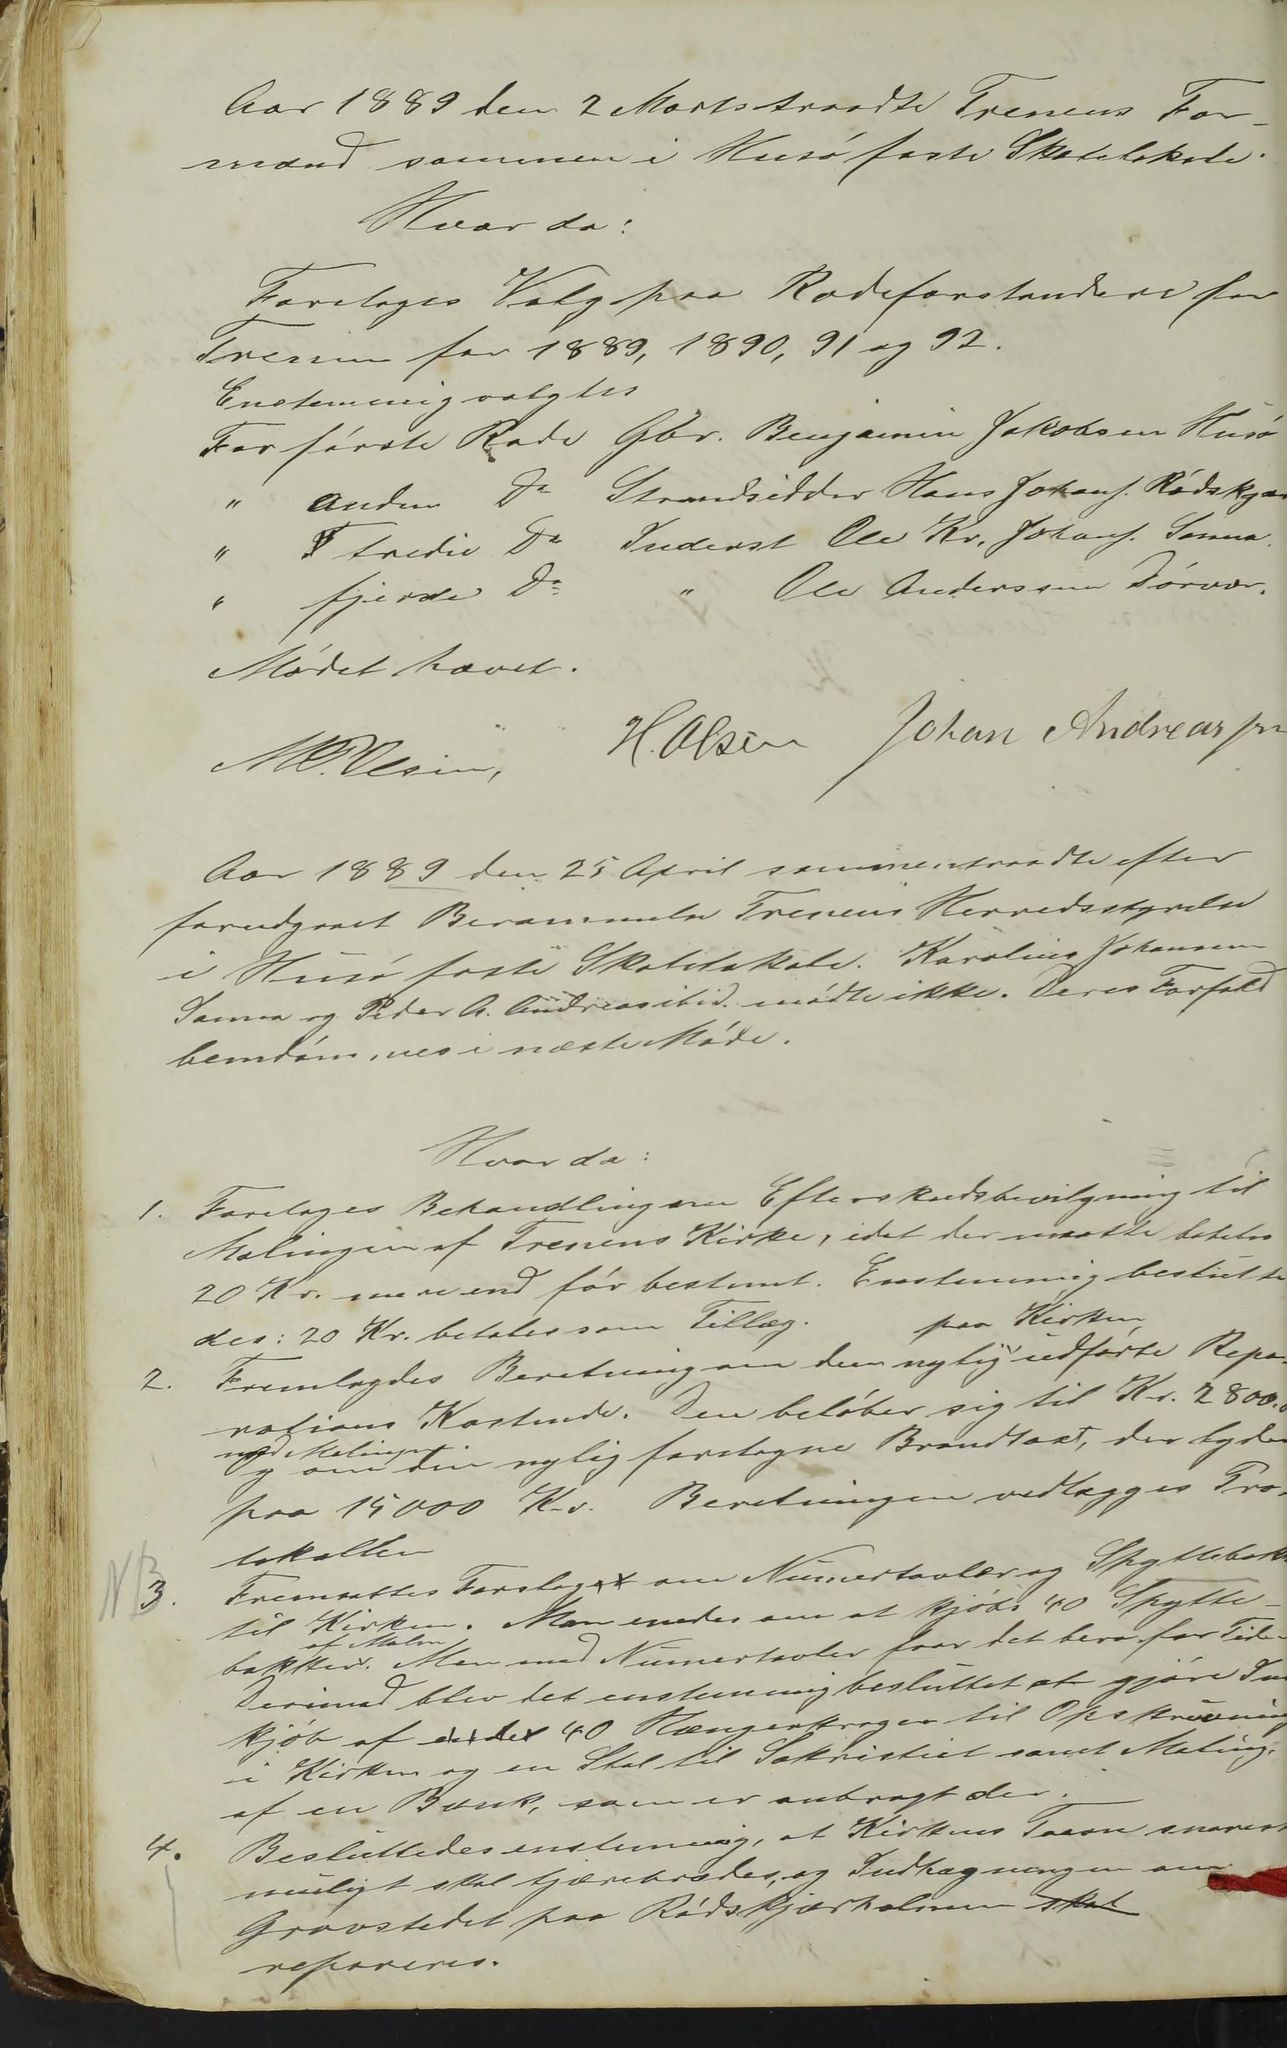 Aar 1889 den 2 Marts traadte Trenens For-
mænd sammen i Husø faste Skolelokale.
Hvor da:
Foretoges Valg paa Rodeforstandere for
Trenen for 1889, 1890, 91 og 92.
Enstemmig valgtes
For første Rode Gbr. Benjamin Jakobsen Husø
" anden Do Strandsidder Hans Johans. Rødskjær
" tredie Do Inderst Ole Kr. Johans. Sanna.
" fjerde Do " Ole Anderssen Dørvær.
Mødet hævet.
H. Olsen Johan Andreassen
Aar 1889 den 25 April sammentraadte efter
forudgaaet Berammelse Trenens Herredsstyrelse
i Husø faste Skolelokale. Karolius Johansen
Sanna og Peder A. Andreas ibid. mødte ikke. Deres Forfald
bemdøm.nes i næste Møde.
Hvor da:
1. Foretoges Behandlingen Efterskudsbevilgning til
Malingen af Trenens Kirke, idet der maatte betales
20 Kr. mere end før bestemt. Enstemmig beslutte
des: 20 Kr. betales som Tillæg. paa Kirken
2. Fremlagdes Beretning om den nylig udførte Repa-
rations Kostende. Den beløber sig til Kr. 2800.
med Malingen
og om din nylig foretagne Brandtaxt, der lyder
paa 15000 Kr. Beretningen vedlægges Pro-
tokollen
NB 3. Fremsattes Forslag om Numertavler og Spyttebak
til Kirken. Man enedes om at kjøbe 40 Spytte-
af Malm
bakker. Men med Numertavler faar det bero for Tiden
Derimod blev det enstemmig besluttet at gjøre Ind
kjøb af 40 Hængerkroger til Opskruvning
i Kirken og en Stol til Sakristiet samt Maling
af en Bænk, som er anbragt der.
4. Besluttedes enstemmig, at Kirkens Taarn snarest
muligt skal tjærebrædes, og Indhegningen om
Gravstedet paa Rødskjærholmen skal
repareres.